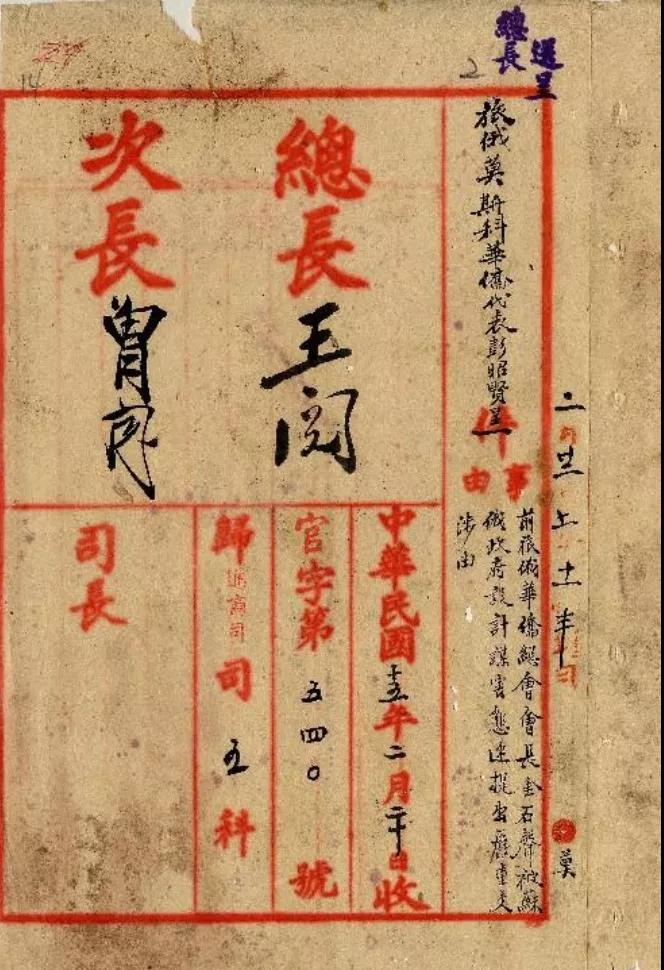 呈
總長
2
14
二月廿 上十一半
莫
旅俄莫斯科華僑代表彭昭賢呈一件
事由
前旅俄華僑總會會長金石聲被蘇
俄政府設計謀害懇速提出嚴重交
涉由
總長
王閱
次長
曾閱
中華民國十五年二月二十日收
官字第五四〇號
歸通商司司五科
司長